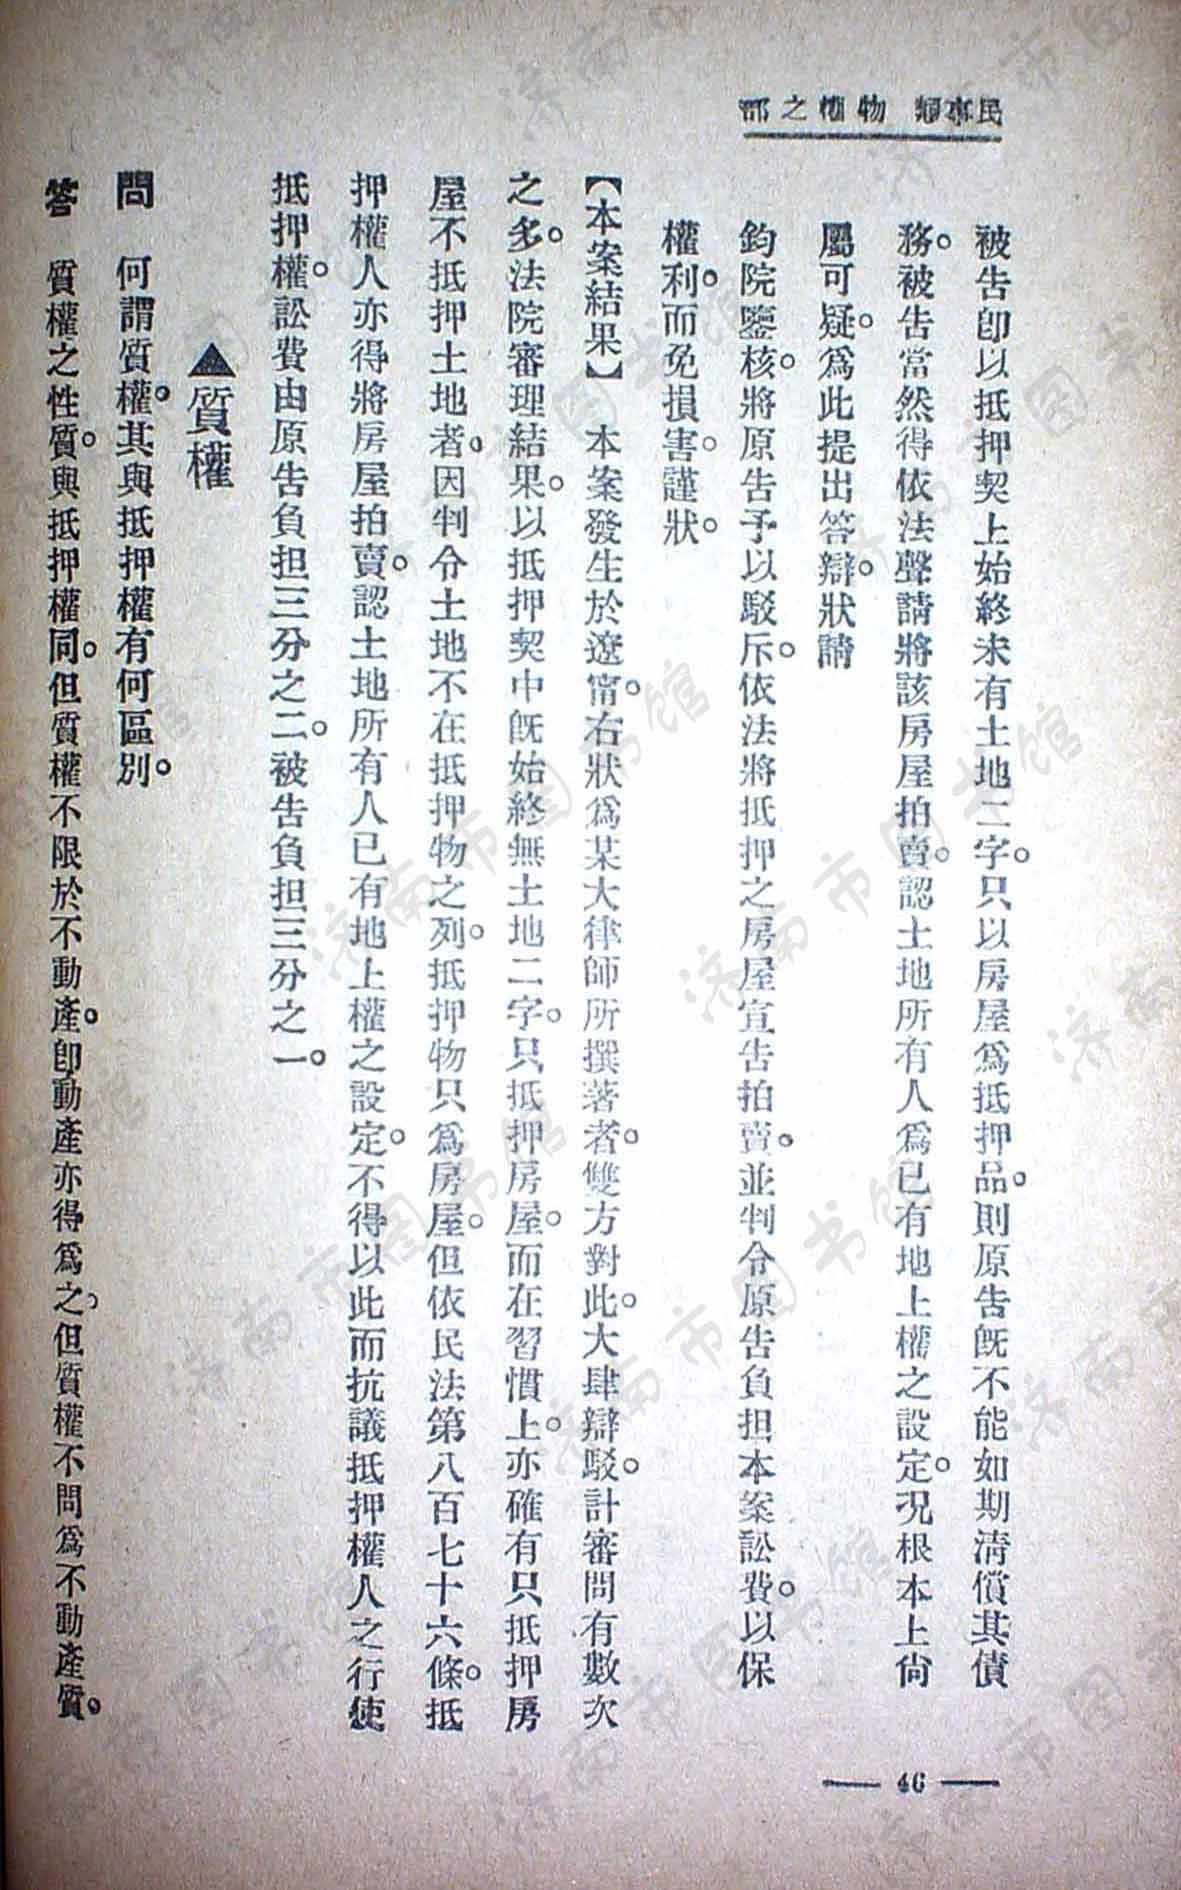 民事類 物權之部
被告卽以抵押契上始終未有土地二字。只以房屋爲抵押品。則原告旣不能如期清償其債
務。被告當然得依法聲請將該房屋拍賣。認土地所有人爲已有地上權之設定。况根本上尙
屬可疑。爲此提出答辯。狀請
鈞院鑒核。將原告予以駁斥。依法將抵押之房屋宣告拍賣。並判令原告負担本案訟費。以保
權利。而免損害。謹狀。
【本案結果】 本案發生於遼甯。右狀爲某大律師所撰著者。雙方對此。大肆辯駁。計審問有數次
之多。法院審理結果。以抵押契中旣始終無土地二字。只抵押房屋。而在習慣上。亦確有只抵押房
屋不抵押土地者。因判令土地不在抵押物之列。抵押物只爲房屋。但依民法第八百七十六條。抵
押權人亦得將房屋拍賣。認土地所有人已有地上權之設定。不得以此而抗議抵押權人之行使
抵押權。訟費由原告負担三分之二。被告負担三分之一。
▲質權
問 何謂質權。其與抵押權有何區別。
答 質權之性質。與抵押權同。但質權不限於不動產。卽動產亦得爲之。但質權不問爲不動產質。
— 46 —
济南市图书馆